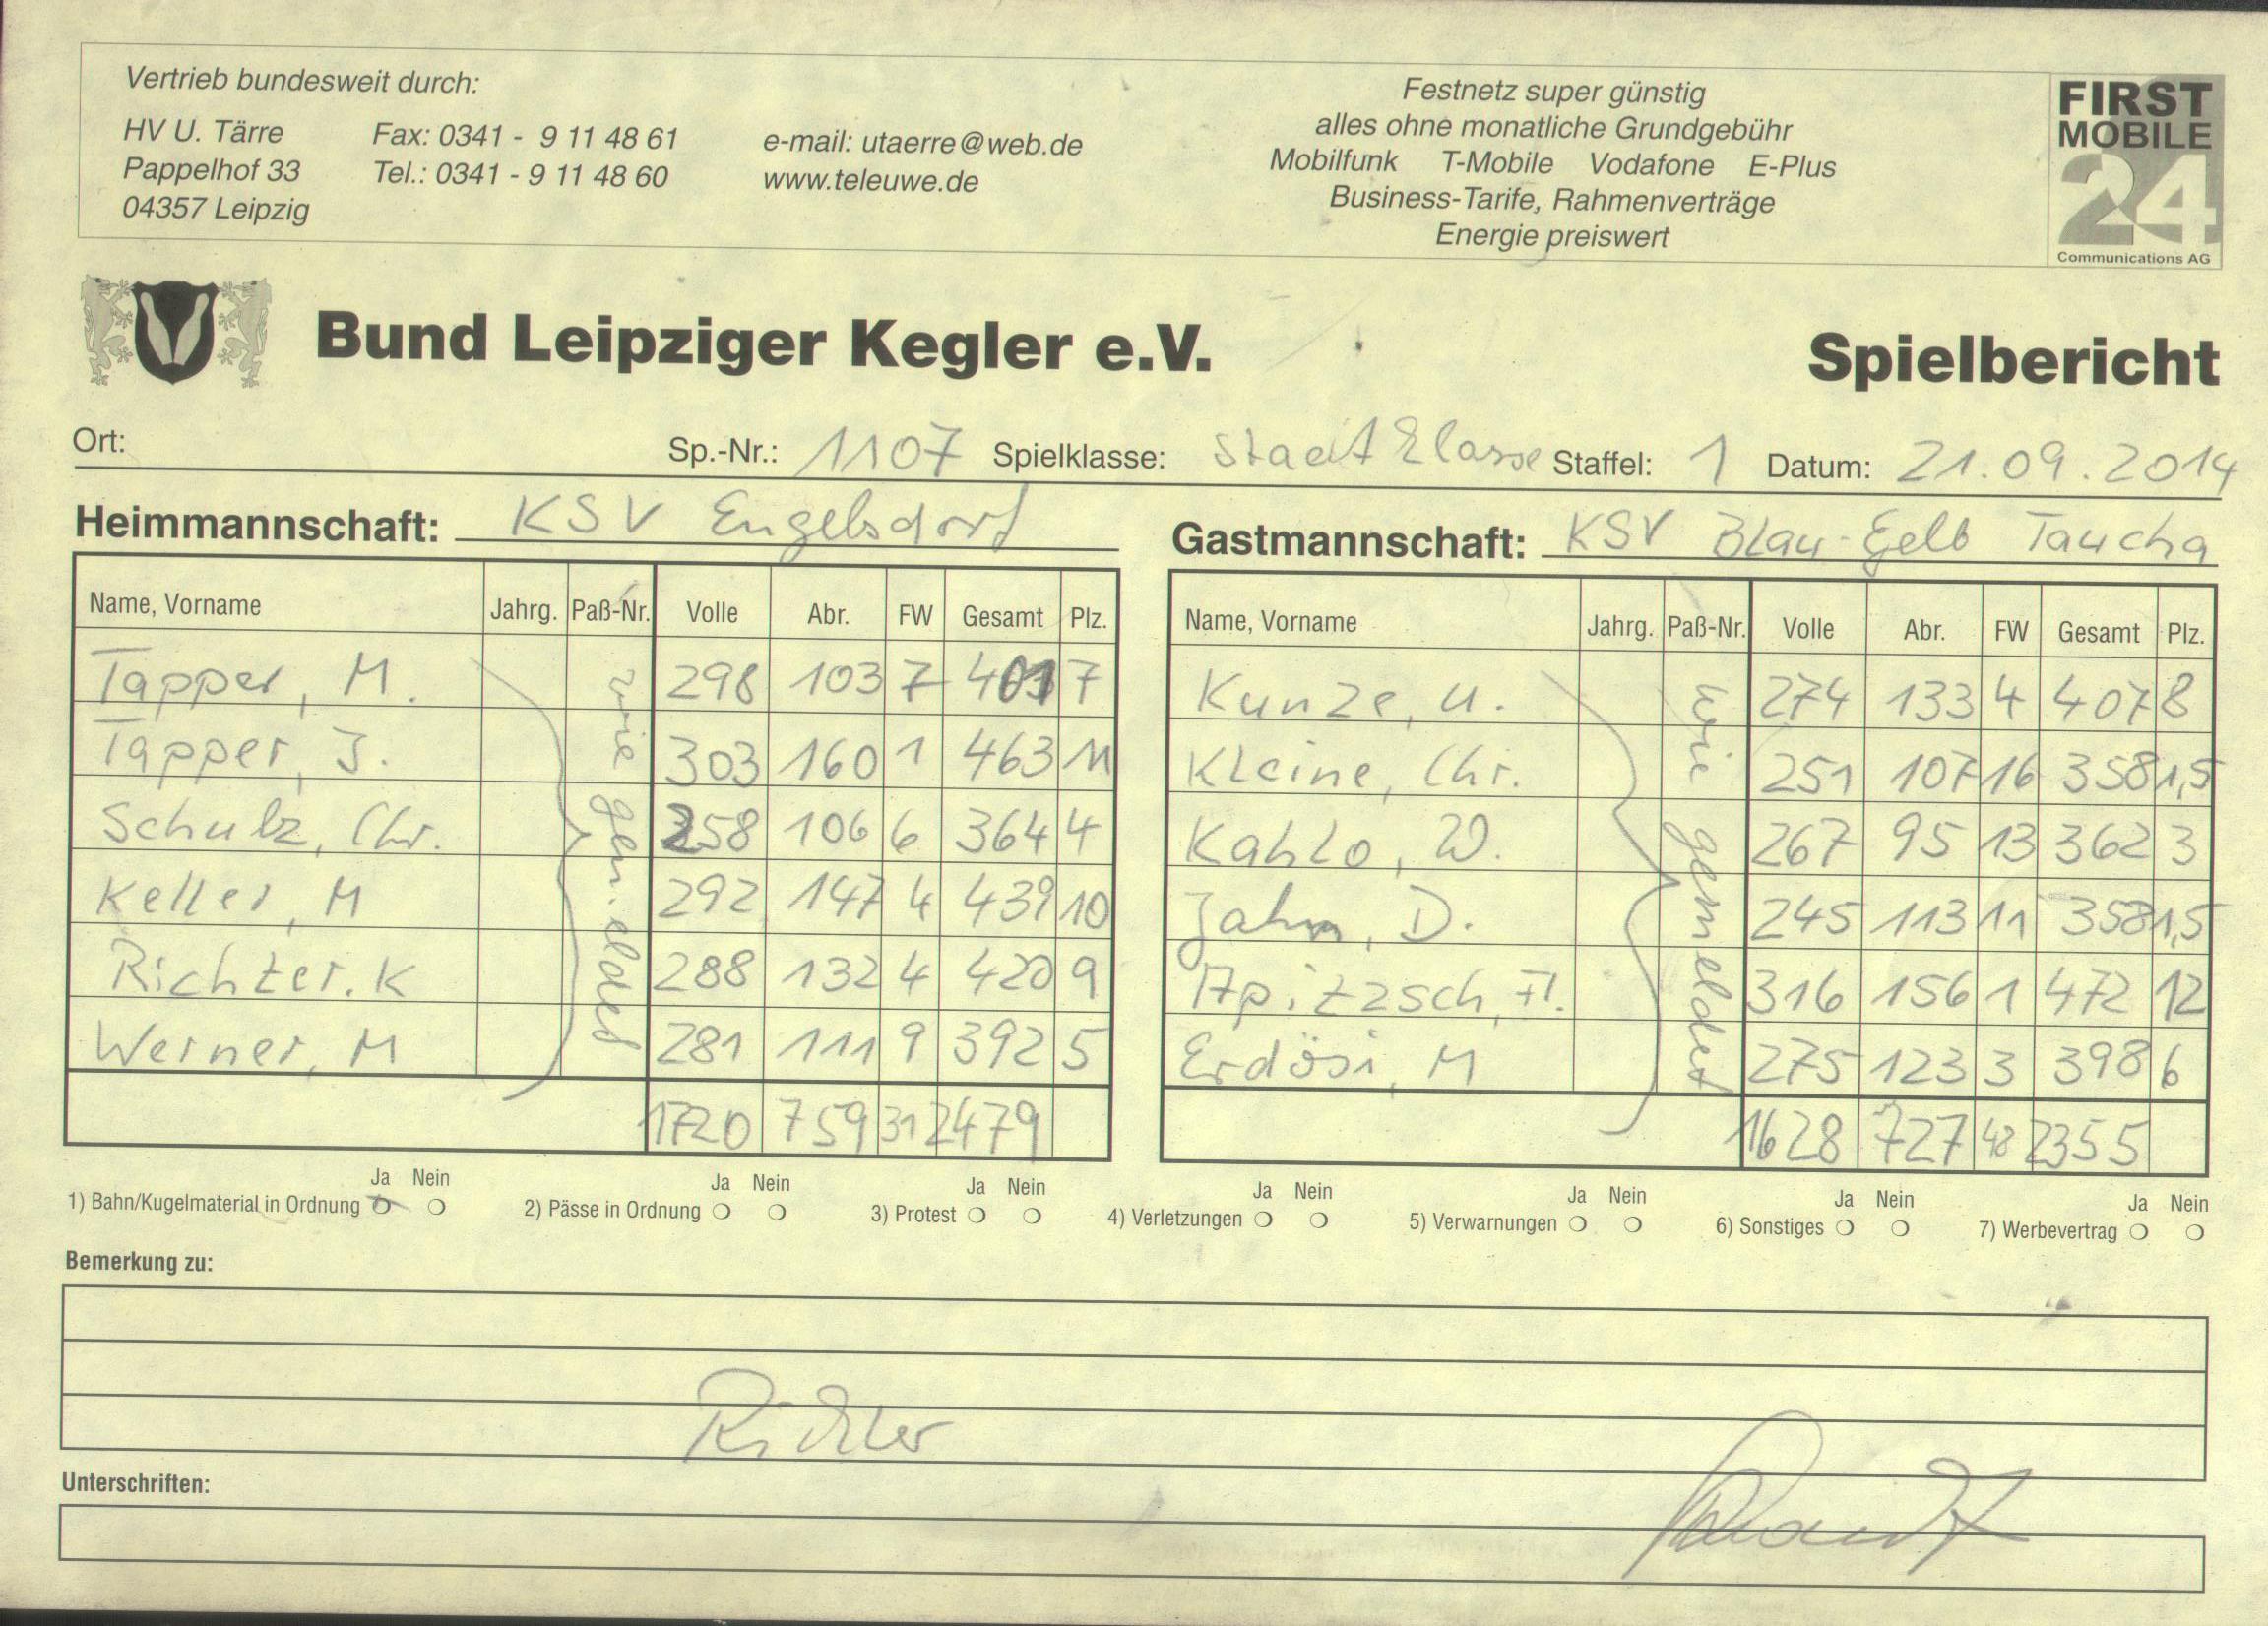 Vertrieb bundesweit durch:
HV U. Tärre Fax: 0341 - 9 11 48 61 e-mail: utaerre@web.de
Pappelhof 33 Tel.: 0341 - 9 11 48 60 www.teleuwe.de
04357 Leipzig
Festnetz super günstig
alles ohne monatliche Grundgebühr
Mobilfunk T-Mobile Vodafone E-Plus
Business-Tarife, Rahmenverträge
Energie preiswert
FIRST
MOBILE
24
Communications AG
Bund Leipziger Kegler e.V. Spielbericht
Ort: Sp.-Nr.: 1107 Spielklasse: Stadtklasse Staffel: 1 Datum: 21.09.2014
Heimmannschaft: KSV Engelsdorf
Name, Vorname Jahrg. Paß-Nr. Volle Abr. FW Gesamt Plz.
Tapper, M. 298 103 7 401 7
Tapper, J. 303 160 1 463 11
Schulz, Chr. 258 106 6 364 4
Keller, M 292 147 4 439 10
Richter. K 288 132 4 420 9
Werner, M 281 111 9 392 5
wie gemeldet
1720 759 31 2479
Gastmannschaft: KSV Blau-Gelb Taucha
Name, Vorname Jahrg. Paß-Nr. Volle Abr. FW Gesamt Plz.
Kunze, U. 274 133 4 407 8
Kleine, Chr. 251 107 16 358 1,5
Kahlo, W. 267 95 13 362 3
Jahn, D. 245 113 11 358 1,5
Apitzsch, Fl. 316 156 1 472 12
Erdösi, M 275 123 3 398 6
wie gemeldet
1628 727 48 2355
Ja Nein Ja Nein Ja Nein Ja Nein Ja Nein Ja Nein Ja Nein
1) Bahn/Kugelmaterial in Ordnung 2) Pässe in Ordnung 3) Protest 4) Verletzungen 5) Verwarnungen 6) Sonstiges 7) Werbevertrag
Bemerkung zu:
Richter
Unterschriften: